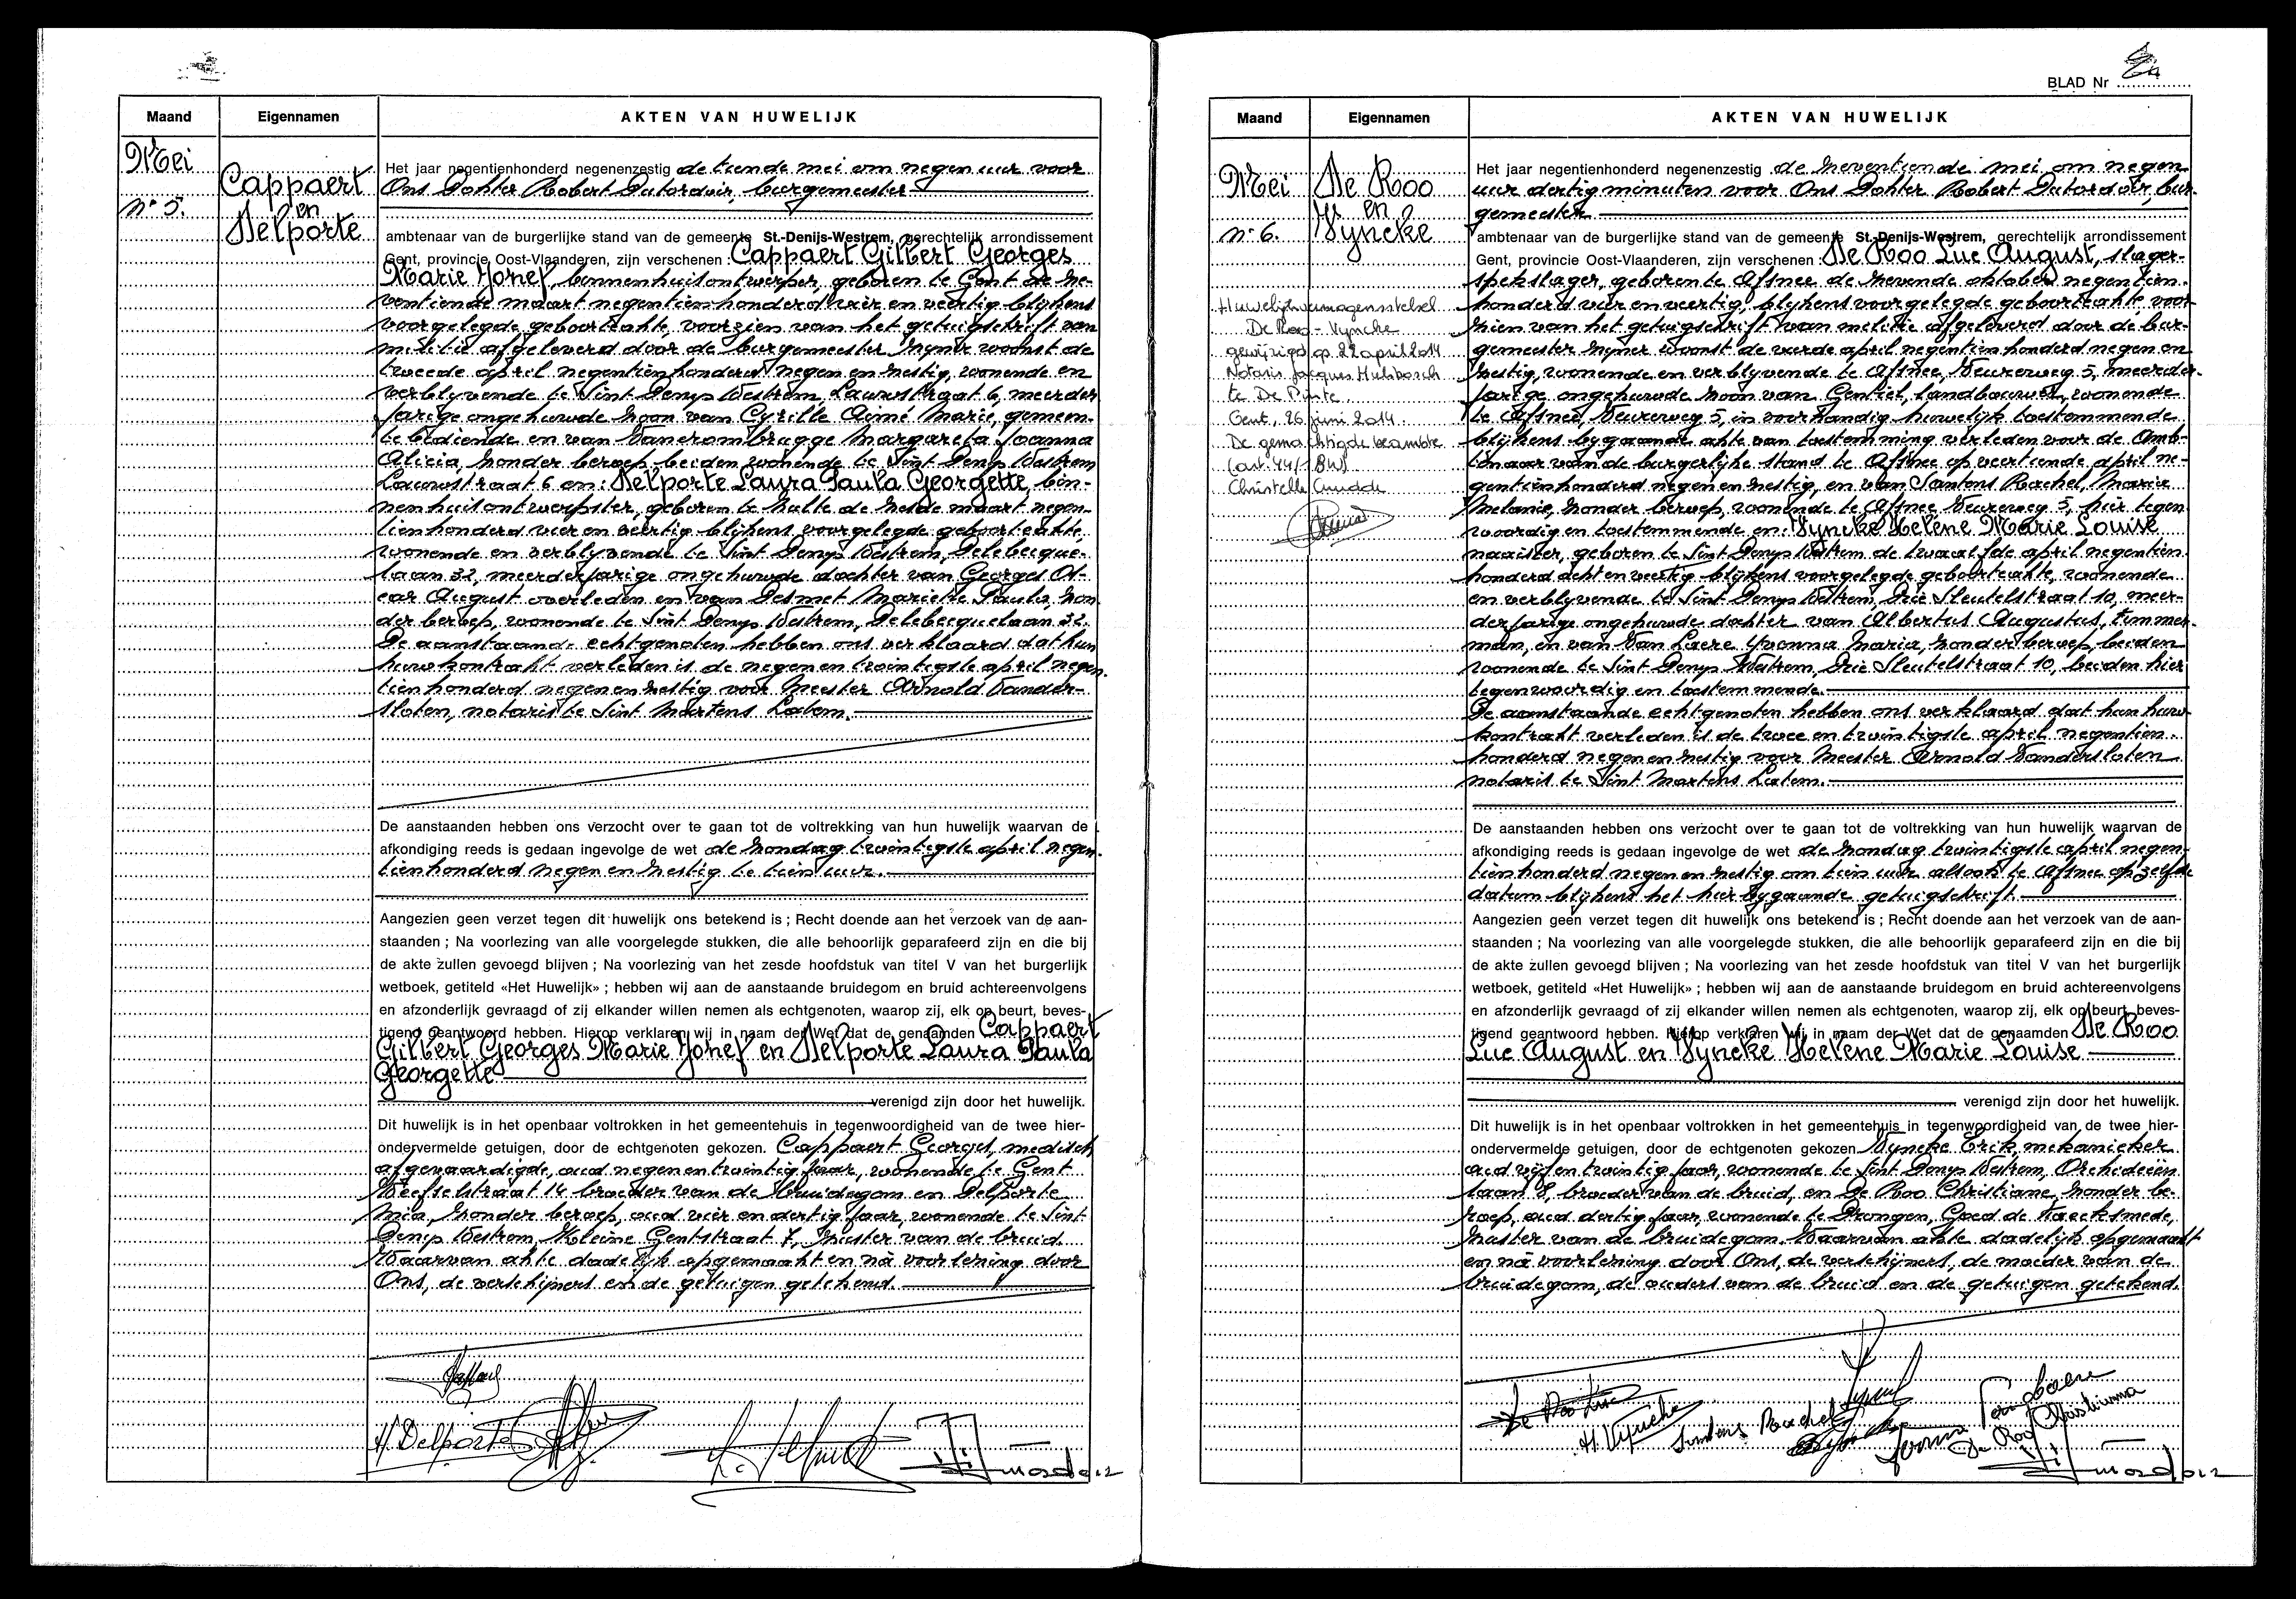 Maand Eigennamen AKTEN VAN HUWELIJK
Mei
n° 5.
Cappaert
en
Delporte
Het jaar negentienhonderd negenenzestig de tiende mei om negen uur voor
Ons Dokter Robert Dutordoir, burgemeester
ambtenaar van de burgerlijke stand van de gemeente St.-Denijs-Westrem, gerechtelijk arrondissement
Gent, provincie Oost-Vlaanderen, zijn verschenen : Cappaert Gilbert Georges
Marie Jozef, binnenhuisontwerper, geboren te Gent de ze-
ventiende maart negentienhonderd vier en veertig blijkens
voorgelegde geboorteakte, voorzien van het getuigschrift van
militie afgeleverd door de burgemeester zijner woonst de
tweede april negentienhonderd negen en zestig, wonende en
verblijvende te Sint Denys Westrem, Laurestraat 6, meerder
jarige ongehuwde zoon van Cyrille Aimé Marie, gemeen-
te bediende en van Vanerombrugge Margareta Joanna
Alicia, zonder beroep, beiden wonende te Sint Denys Westrem
Laurestraat 6 en: Delporte Laura Paula Georgette, bin-
nenhuisontwerpster, geboren te Halle de zesde maart negen-
tienhonderd vier en veertig blijkens voorgelegde geboorteakte,
wonende en verblijvende te Sint Denys Westrem, Delebecque-
laan 32, meerderjarige ongehuwde dochter van Georges Os-
car August overleden en van Desmet Marieke Paula, zon
der beroep, wonende te Sint Denys Westrem, Delebecquelaan 32.
De aanstaande echtgenoten hebben ons verklaard dat hun
huwkontrakt verleden is de negen en twintigste april negen
tienhonderd negen en zestig voor Meester Arnold Vander-
sloten, notaris te Sint Martens Latem.
De aanstaanden hebben ons verzocht over te gaan tot de voltrekking van hun huwelijk waarvan de
afkondiging reeds is gedaan ingevolge de wet de zondag twintigste april negen
tienhonderd negen en zestig te tien uur.
Aangezien geen verzet tegen dit huwelijk ons betekend is ; Recht doende aan het verzoek van de aan-
staanden ; Na voorlezing van alle voorgelegde stukken, die alle behoorlijk geparafeerd zijn en die bij
de akte zullen gevoegd blijven ; Na voorlezing van het zesde hoofdstuk van titel V van het burgerlijk
wetboek, getiteld «Het Huwelijk» ; hebben wij aan de aanstaande bruidegom en bruid achtereenvolgens
en afzonderlijk gevraagd of zij elkander willen nemen als echtgenoten, waarop zij, elk op beurt, beves-
tigend geantwoord hebben. Hierop verklaren wij in naam der Wet dat de genaamden Cappaert
Gilbert Georges Marie Jozef en Delporte Laura Paula
Georgette
verenigd zijn door het huwelijk.
Dit huwelijk is in het openbaar voltrokken in het gemeentehuis in tegenwoordigheid van de twee hier-
ondervermelde getuigen, door de echtgenoten gekozen. Cappaert Georges, medisch
afgevaardigde, oud negen en twintig jaar, wonende te Gent
straat 14 broeder van de bruidegom en Delporte
Mia, zonder beroep, oud vier en dertig jaar, wonende te Sint
Denys Westrem, Kleine Gentstraat 7, zuster van de bruid
Waarvan akte dadelijk opgemaakt en nà voorlezing door
Ons, de verschijners en de getuigen getekend.
H. Delporte
BLAD Nr
Maand Eigennamen AKTEN VAN HUWELIJK
Mei
n° 6.
De Roo
en
Vyncke
Huwelijksvermogensstelsel
De Roo - Vyncke
gewijzigd op 22 april 2014
Notaris Jacques Hulsbosch
te De Pinte
Gent, 26 juni 2014.
De gemachtigde beambte
(art. 44/1 BW)
Christelle
Het jaar negentienhonderd negenenzestig de zeventiende mei om negen
uur dertig minuten voor Ons Dokter Robert Dutordoir, bur-
gemeester
ambtenaar van de burgerlijke stand van de gemeente St.-Denijs-Westrem, gerechtelijk arrondissement
Gent, provincie Oost-Vlaanderen, zijn verschenen : De Roo Luc August, slager-
spekslager, geboren te Afsnee de zevende oktober negentien-
honderd vier en veertig, blijkens voorgelegde geboorteakte, voor-
zien van het getuigschrift van militie afgeleverd door de bur-
gemeester zijner woonst de vierde april negentienhonderd negen en
zestig, wonende en verblijvende te Afsnee, Veureweg 5, meerder-
jarige ongehuwde zoon van Gentiel, landbouwer, wonende
te Afsnee, Veureweg 5, in voorhandig huwelijk toestemmende
blijkens bijgaande akte van toestemming verleden voor de Amb-
tenaar van de burgerlijke stand te Afsnee op veertiende april ne-
gentienhonderd negen en zestig, en van Santens Rachel, Marie
Melanie, zonder beroep, wonende te Afsnee Veureweg 5, hier tegen
woordig en toestemmende en: Vyncke Helene Marie Louise
naaister, geboren te Sint Denys Westrem de twaalfde april negentien
honderd acht en veertig blijkens voorgelegde geboorteakte, wonende
en verblijvende te Sint Denys Westrem, Drie Sleutelstraat 10, meer-
derjarige ongehuwde dochter van Albertus Augustus, timmer-
man, en van Van Laere Yvonna Maria, zonder beroep, beiden
wonende te Sint Denys Westrem, Drie Sleutelstraat 10, beiden hier
tegenwoordig en toestemmende.
De aanstaande echtgenoten hebben ons verklaard dat hun huw-
kontrakt verleden is de twee en twintigste april negentien
honderd negen en zestig voor Meester Arnold Vandersloten
notaris te Sint Martens Latem.
De aanstaanden hebben ons verzocht over te gaan tot de voltrekking van hun huwelijk waarvan de
afkondiging reeds is gedaan ingevolge de wet de zondag twintigste april negen
tienhonderd negen en zestig om tien uur alsook te Afsnee op zelfde
datum blijkens het hier bijgaande getuigschrift.
Aangezien geen verzet tegen dit huwelijk ons betekend is ; Recht doende aan het verzoek van de aan-
staanden ; Na voorlezing van alle voorgelegde stukken, die alle behoorlijk geparafeerd zijn en die bij
de akte zullen gevoegd blijven ; Na voorlezing van het zesde hoofdstuk van titel V van het burgerlijk
wetboek, getiteld «Het Huwelijk» ; hebben wij aan de aanstaande bruidegom en bruid achtereenvolgens
en afzonderlijk gevraagd of zij elkander willen nemen als echtgenoten, waarop zij, elk op beurt, beves-
tigend geantwoord hebben. Hierop verklaren wij in naam der Wet dat de genaamden De Roo
Luc August en Vyncke Helene Marie Louise
verenigd zijn door het huwelijk.
Dit huwelijk is in het openbaar voltrokken in het gemeentehuis in tegenwoordigheid van de twee hier-
ondervermelde getuigen, door de echtgenoten gekozen Vyncke Erik, mekanieker
oud vijf en twintig jaar, wonende te Sint Denys Westrem, Orchideeën
laan 8, broeder van de bruid, en De Roo Christiane, zonder be-
roep, oud dertig jaar, wonende te Drongen, Goed de
zuster van de bruidegom. Waarvan akte dadelijk opgemaakt
en nà voorlezing door Ons, de verschijners, de moeder van de
bruidegom, de ouders van de bruid en de getuigen getekend.
De Roo Luc
H. Vyncke
Santens Rachel
Van Laere
De Roo